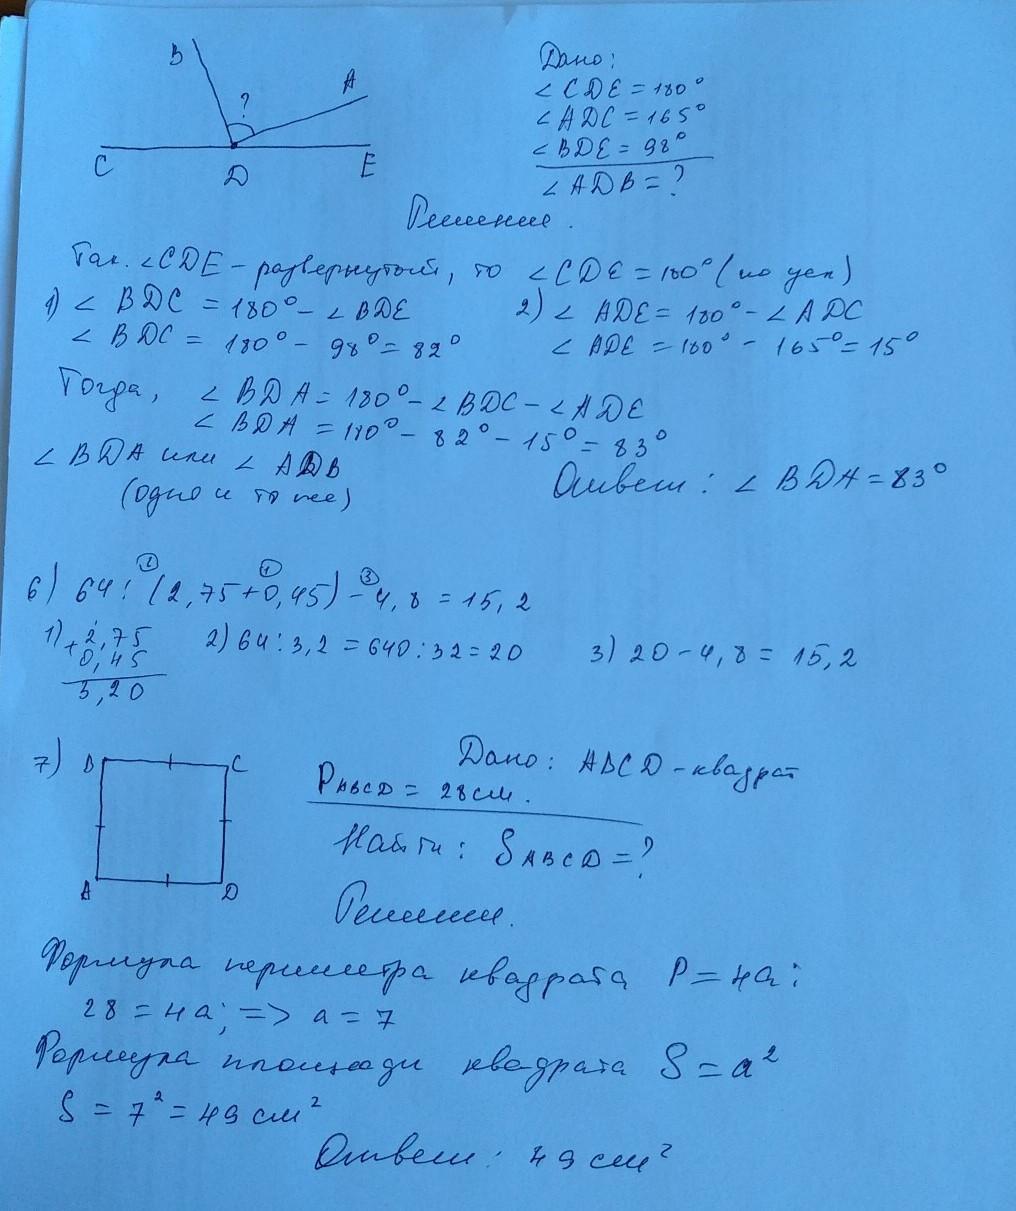 B
A
?
C
D
E
Дано:
∠CDE = 180°
∠ADC = 165°
∠BDE = 98°
∠ADB = ?
Решение.
Так. ∠CDE - развернутый, то ∠CDE = 180° (по усл)
1) ∠BDC = 180° - ∠BDE
∠BDC = 180° - 98° = 82°
2) ∠ADE = 180° - ∠ADC
∠ADE = 180° - 165° = 15°
Тогда, ∠BDA = 180° - ∠BDC - ∠ADE
∠BDA = 180° - 82° - 15° = 83°
∠BDA или ∠ADB
(одно и то же)
Ответ: ∠BDA = 83°
2 1 3
6) 64 : (2,75 + 0,45) - 4,8 = 15,2
1) + 2,75
0,45
3,20
2) 64 : 3,2 = 640 : 32 = 20
3) 20 - 4,8 = 15,2
7) B C
A D
Дано: ABCD - квадрат
P ABCD = 28 см.
Найти: S ABCD = ?
Решение.
Формула периметра квадрата P = 4a;
28 = 4a; => a = 7
Формула площади квадрата S = a²
S = 7² = 49 см²
Ответ: 49 см²